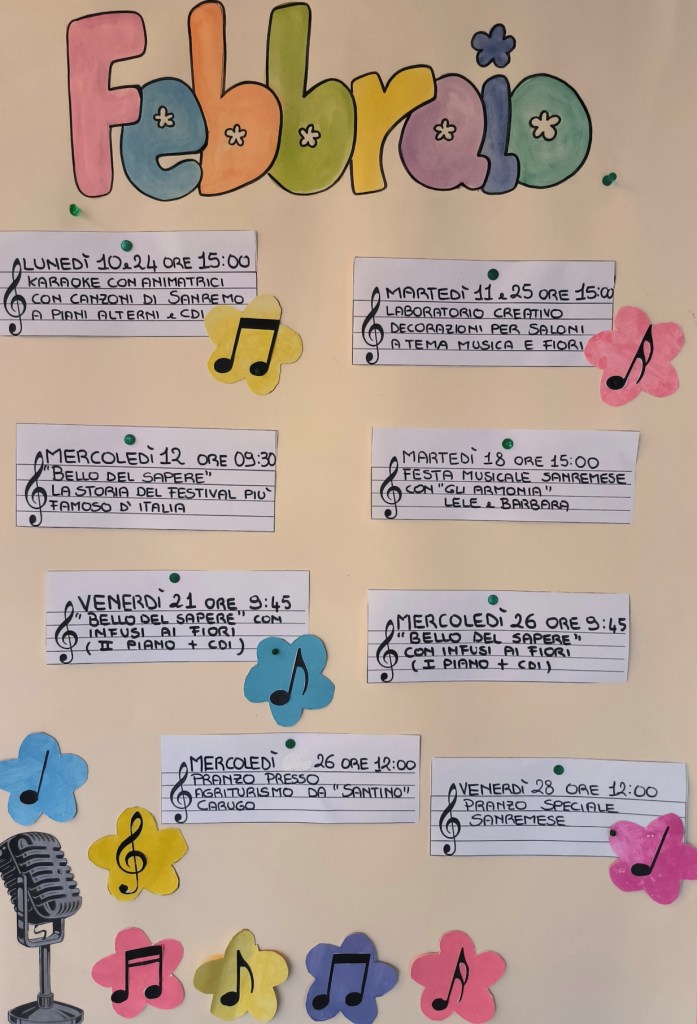 Febbraio
LUNEDÌ 10 e 24 ORE 15:00
KARAOKE CON ANIMATRICI
CON CANZONI DI SANREMO
A PIANI ALTERNI e CDI
MARTEDÌ 11 e 25 ORE 15:00
LABORATORIO CREATIVO
DECORAZIONI PER SALONI
A TEMA MUSICA E FIORI
MERCOLEDÌ 12 ORE 09:30
"BELLO DEL SAPERE"
LA STORIA DEL FESTIVAL PIÙ
FAMOSO D'ITALIA
MARTEDÌ 18 ORE 15:00
FESTA MUSICALE SANREMESE
CON "GLI ARMONIA"
LELE e BARBARA
VENERDÌ 21 ORE 9:45
"BELLO DEL SAPERE" CON
INFUSI AI FIORI
(II PIANO + CDI)
MERCOLEDÌ 26 ORE 9:45
"BELLO DEL SAPERE"
CON INFUSI AI FIORI
(I PIANO + CDI)
MERCOLEDÌ 26 ORE 12:00
PRANZO PRESSO
AGRITURISMO DA "SANTINO"
CARUGO
VENERDÌ 28 ORE 12:00
PRANZO SPECIALE
SANREMESE